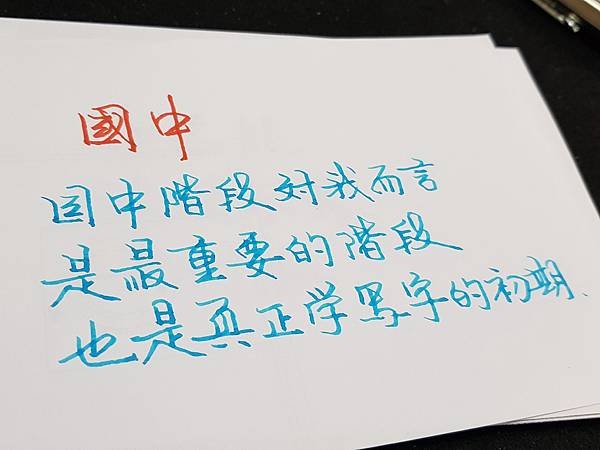 國中
囯中階段対我而言
是最重要的階段
也是真正学写字的初期、